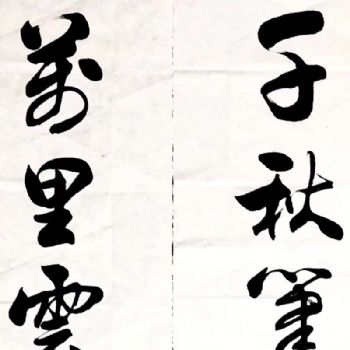 千秋筆
萬里雲